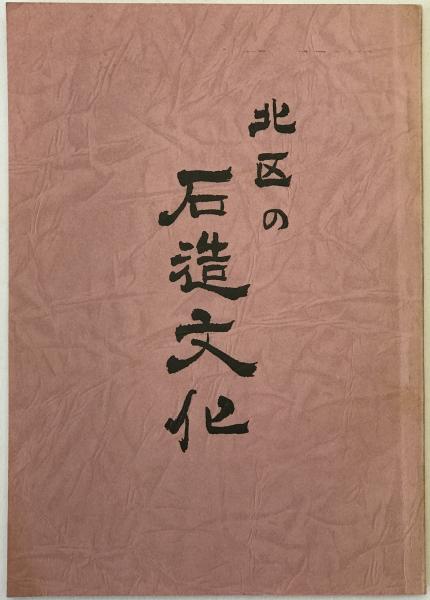 北区の
石造文化